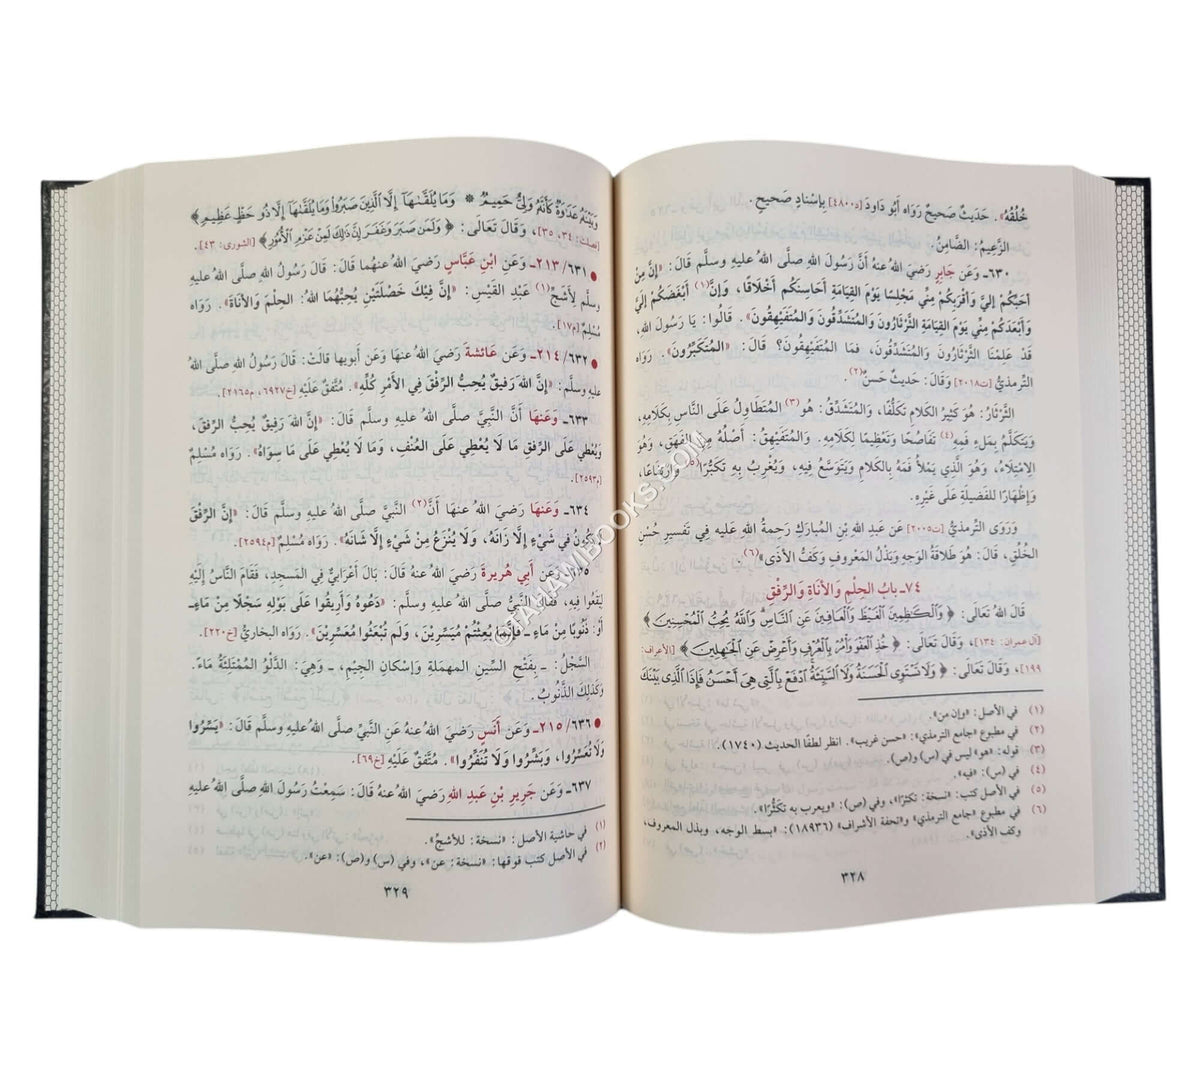 خُلُقُهُ». حَدِيثٌ صَحِيحٌ رَوَاه أَبُو دَاودَ [د٤٨٠٠] بِإسْنَادٍ صَحِيحٍ.
الزَّعِيمُ: الضَّامِنُ.
٦٣٠- وَعَن جَابِرٍ رَضِيَ اللهُ عنهُ أَنَّ رَسُولَ اللهِ صلَّى اللهُ عليهِ وسلَّم قَالَ: «إِنَّ مِنْ
أَحَبِّكُمْ إِلَيَّ وَأَقْرَبِكُمْ مِنِّي مَجْلِسًا يَوْمَ القِيَامَةِ أَحَاسِنَكُم أَخْلَاقًا، وَإِنَّ(١) أَبْغَضَكُم إِلَيَّ
وَأَبْعَدَكُمْ مِنِّي يَوْمَ القِيَامَةِ الثَّرْثَارُونَ وَالمُتَشَدِّقُونَ وَالمُتَفَيْهِقُونَ». قَالُوا: يَا رَسُولَ اللهِ،
قَدْ عَلِمْنَا الثَّرْثَارُونَ وَالمُتَشَدِّقُونَ، فمَا المُتَفَيْهِقُونَ؟ قَالَ: «المُتَكَبِّرُونَ». رَوَاه
التِّرمذِيُّ [ت٢٠١٨] وَقَالَ: حَدِيثٌ حَسَنٌ(٢).
الثَّرْثَارُ: هُوَ كَثِيرُ الكَلَامِ تَكَلُّفًا، وَالمُتَشَدِّقُ: هُوَ(٣) المُتَطَاوِلُ عَلَى النَّاسِ بِكَلَامِهِ،
وَيَتَكَلَّمُ بِمَلءِ فَمِهِ(٤) تَفَاصُحًا وَتَعْظِيمًا لِكَلَامِهِ. وَالمُتَفَيْهِقُ: أَصْلُهُ مِنَ الفَهَقِ، وَهُوَ
الِامْتِلَاءُ، وَهُوَ الَّذِي يَمْلَأُ فَمَهُ بِالكَلَامِ وَيَتَوَسَّعُ فِيهِ، وَيُغْرِبُ بِهِ تَكَبُّرًا(٥) وَارْتِفَاعًا،
وَإِظْهَارًا للفَضِيلَةِ عَلَى غَيْرِهِ.
وَرَوَى التِّرمذِيُّ [ت٢٠٠٥] عَن عَبدِ اللهِ بنِ المُبَارَكِ رَحِمَهُ اللهُ عَلَيه فِي تَفسِيرِ حُسْنِ
الخُلُقِ، قَالَ: هُوَ طَلَاقَةُ الوَجهِ وَبَذْلُ المَعرُوفِ وَكَفُّ الأَذَى»(٦).
٧٤- بابُ الحِلْمِ وَالأَنَاةِ وَالرِّفْقِ
قَالَ اللهُ تَعَالَى: ﴿ وَٱلْكَٰظِمِينَ ٱلْغَيْظَ وَٱلْعَافِينَ عَنِ ٱلنَّاسِ وَٱللَّهُ يُحِبُّ ٱلْمُحْسِنِينَ ﴾
[آل عمران: ١٣٤]، وَقَالَ تَعَالَى: ﴿ خُذِ ٱلْعَفْوَ وَأْمُرْ بِٱلْعُرْفِ وَأَعْرِضْ عَنِ ٱلْجَٰهِلِينَ ﴾ [الأعراف:
١٩٩]، وَقَالَ تَعَالَى: ﴿ وَلَا تَسْتَوِى ٱلْحَسَنَةُ وَلَا ٱلسَّيِّئَةُ ٱدْفَعْ بِٱلَّتِى هِىَ أَحْسَنُ فَإِذَا ٱلَّذِى بَيْنَكَ
(١) في الأصل: «وإن من».
(٢) في مطبوع «جامع الترمذي»: «حسن غريب». انظر لطفًا الحديث (١٧٤٠).
(٣) قوله: «هو» ليس في (س) و(ص).
(٤) في (س): «فيه».
(٥) في الأصل كتب: «نسخة: تكثرًا»، وفي (ص): «ويعرب به تكَثُّرًا».
(٦) في مطبوع «جامع الترمذي» و«تحفة الأشراف» (١٨٩٣٦): «بسط الوجه، وبذل المعروف،
وكف الأذى».
٣٢٨
وَبَيْنَهُۥ عَدَٰوَةٌ كَأَنَّهُۥ وَلِىٌّ حَمِيمٌ * وَمَا يُلَقَّىٰهَآ إِلَّا ٱلَّذِينَ صَبَرُوا۟ وَمَا يُلَقَّىٰهَآ إِلَّا ذُو حَظٍّ عَظِيمٍ ﴾
[فصلت: ٣٤، ٣٥]، وَقَالَ تَعَالَى: ﴿ وَلَمَن صَبَرَ وَغَفَرَ إِنَّ ذَٰلِكَ لَمِنْ عَزْمِ ٱلْأُمُورِ ﴾ [الشورى: ٤٣].
● ٦٣١/ ٢١٣- وَعَنِ ابْنِ عَبَّاسٍ رَضِيَ اللهُ عنهُما قَالَ: قَالَ رَسُولُ اللهِ صلَّى اللهُ عليهِ
وسلَّم لِأَشَجِّ(١) عَبْدِ القَيْسِ: «إِنَّ فِيكَ خَصْلَتَيْنِ يُحِبُّهُمَا اللهُ: الحِلْمَ وَالأَنَاةَ». رَوَاه
مُسْلِمٌ [م١٧].
● ٦٣٢/ ٢١٤- وَعَن عَائشَةَ رَضِيَ اللهُ عنهَا وَعَن أَبويها قَالَتْ: قَالَ رَسُولُ اللهِ صلَّى اللهُ
عليهِ وسلَّم: «إِنَّ اللهَ رَفِيقٌ يُحِبُّ الرِّفْقَ فِي الأَمْرِ كُلِّهِ». مُتَّفَقٌ عَلَيْهِ [خ٦٩٢٧، م٢١٦٥].
٦٣٣- وَعَنهَا أَنَّ النَّبِيَّ صلَّى اللهُ عليهِ وسلَّم قَالَ: «إِنَّ اللهَ رَفِيقٌ يُحِبُّ الرِّفْقَ،
وَيُعْطِي عَلَى الرِّفْقِ مَا لَا يُعْطِي عَلَى العُنْفِ، وَمَا لَا يُعْطِي عَلَى مَا سِوَاهُ». رَوَاه مُسْلِمٌ
[م٢٥٩٣].
٦٣٤- وَعَنهَا رَضِيَ اللهُ عنهَا أَنَّ(٢) النَّبِيَّ صلَّى اللهُ عليهِ وسلَّم قَالَ: «إِنَّ الرِّفْقَ
لَا يَكُونُ فِي شَيْءٍ إِلَّا زَانَهُ، وَلَا يُنْزَعُ مِنْ شَيْءٍ إِلَّا شَانَهُ». رَوَاه مُسْلِمٌ [م٢٥٩٤].
٦٣٥- وَعَن أَبِي هُرِيرةَ رَضِيَ اللهُ عنهُ قَالَ: بَالَ أَعْرَابِيٌّ فِي المَسجِدِ، فَقَامَ النَّاسُ إِلَيْهِ
لِيَقَعُوا فِيهِ، فَقَالَ النَّبِيُّ صلَّى اللهُ عليهِ وسلَّم: «دَعُوهُ وَأَرِيقُوا عَلَى بَوْلِهِ سَجْلًا مِنْ مَاءٍ-
أَوْ: ذَنُوبًا مِنْ مَاءٍ- فَإِنَّمَا بُعِثْتُمْ مُيَسِّرِينَ، وَلَم تُبْعَثُوا مُعَسِّرِينَ». رَوَاه البخاريُّ [خ٢٢٠].
السَّجْلُ: ـ بِفَتْحِ السِّينِ المهمَلةِ وَإسْكَانِ الجِيْمِ ـ، وَهِيَ: الدَّلْوُ المُمْتَلِئَةُ مَاءً.
وَكَذَلِكَ الذَّنُوبُ.
● ٦٣٦/ ٢١٥- وَعَن أَنَسٍ رَضِيَ اللهُ عنهُ عَنِ النَّبِيِّ صلَّى اللهُ عليهِ وسلَّم قَالَ: «يَسِّرُوا
وَلَا تُعَسِّرُوا، وَبَشِّرُوا وَلَا تُنَفِّرُوا». مُتَّفَقٌ عَلَيْهِ [خ٦٩].
٦٣٧- وَعَن جَرِيرِ بْنِ عَبدِ اللهِ رَضِيَ اللهُ عنهُ قَالَ: سَمِعْتُ رَسُولَ اللهِ صلَّى اللهُ عليهِ
(١) في حاشية الأصل: «نسخة: للأشجِّ».
(٢) في الأصل كتب فوقها: «نسخة: عن»، وفي (س) و(ص): «عن».
٣٢٩
©TAHAWIBOOKS.COM